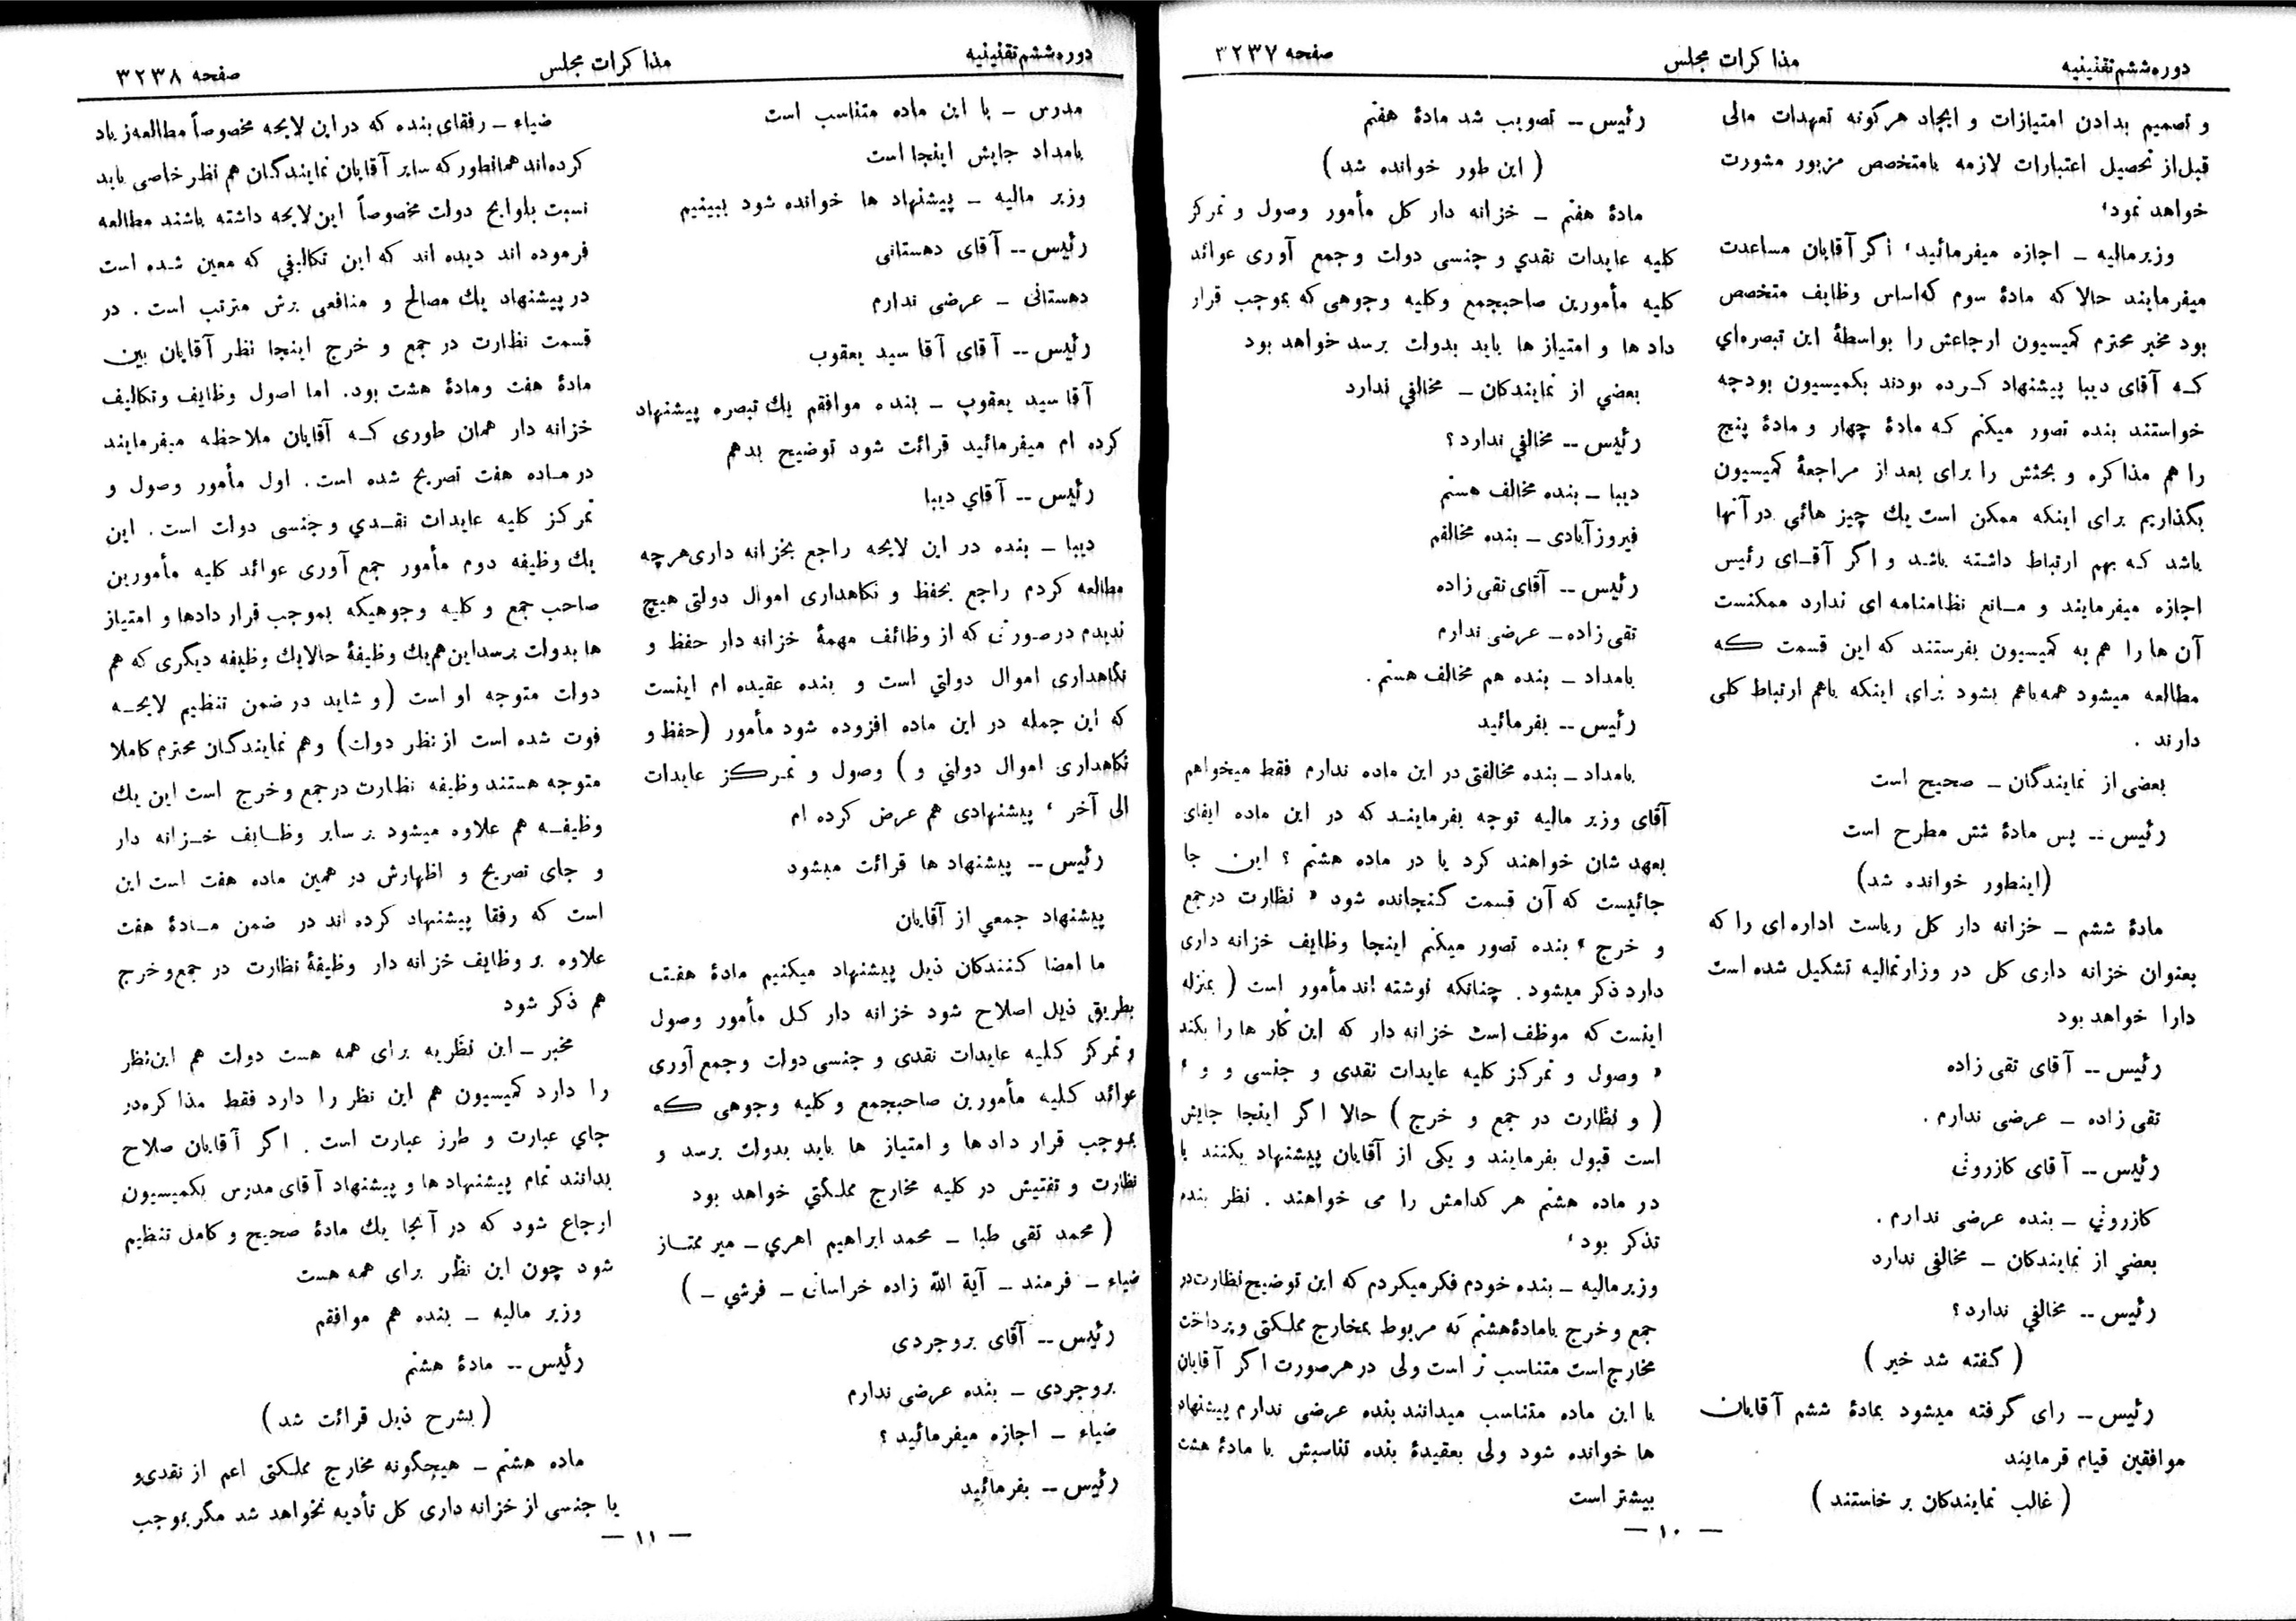 دوره ششم تقنینیه
مذاکرات مجلس
صفحه ۳۲۳۷
و تصمیم بدادن امتیازات و ایجاد هرگونه تعهدات مالی
قبل‌از تحصیل اعتبارات لازمه بامتخصص مزبور مشورت
خواهد نمود؛
وزیرمالیه ـ اجازه میفرمائید؛ اگر آقایان مساعدت
میفرمایند حالا که مادهٔ سوم که‌اساس وظایف متخصص
بود مخبر محترم کمیسیون ارجاعش را بواسطهٔ این تبصره‌ای
کـه آقای دیبا پیشنهاد کـرده بودند بکمیسیون بودجه
خواستند بنده تصور میکنم کـه مادهٔ چهار و مادهٔ پنج
را هم مذاکره و بحثش را برای بعد از مراجعهٔ کمیسیون
بگذاریم برای اینکه ممکن است یك چیز هائی در آنها
باشد کـه بهم ارتباط داشته باشد و اگر آقـای رئیس
اجازه میفرمایند و مـانع نظامنامه ای ندارد ممکنست
آن ها را هم به کمیسیون بفرستند که این قسمت کـه
مطالعه میشود همه‌باهم بشود برای اینکه باهم ارتباط کلی
دارند .
بعضی از نمایندگان ـ صحیح است
رئیس ـ‌ـ پس مادهٔ شش مطرح است
(اینطور خوانده شد)
مادهٔ ششم ـ خزانه دار کل ریاست اداره‌ای را که
بعنوان خزانه داری کل در وزارتمالیه تشکیل شده است
دارا خواهد بود
رئیس ـ‌ـ آقای تقی زاده
تقی زاده ـ عرضی ندارم .
رئیس ـ‌ـ آقای کازرونی
کازرونی ـ بنده عرضی ندارم .
بعضی از نمایندکان ـ مخالفی ندارد
رئیس ـ‌ـ مخالفی ندارد؟
( گفته شد خیر )
رئیس ـ‌ـ رای گرفته میشود بمادهٔ ششم آقایان
موافقین قیام فرمایند
( غالب نمایندکان بر خاستند )
رئیس ـ‌ـ تصویب شد مادهٔ هفتم
( این طور خوانده شد )
مادهٔ هفتم ـ خزانه دار کل مأمور وصول و تمرکز
کلیه عایدات نقدی و جنسی دولت و جمع آوری عوائد
کلیه مأمورین صاحبجمع وکلیه وجوهی که بموجب قرار
داد ها و امتیاز ها باید بدولت برسد خواهد بود
بعضی از نمایندکان ـ مخالفی ندارد
رئیس ـ‌ـ مخالفی ندارد؟
دیبا ـ بنده مخالف هستم
فیروزآبادی ـ بنده مخالفم
رئیس ـ‌ـ آقای تقی زاده
تقی زاده ـ عرضی ندارم
بامداد ـ بنده هم مخالف هستم .
رئیس ـ‌ـ بفرمائید
بامداد ـ بنده مخالفتی در این ماده ندارم فقط میخواهم
آقای وزیر مالیه توجه بفرمایند که در این ماده ایفای
بعهد شان خواهند کرد یا در ماده هشتم ؟ این جا
جائیست که آن قسمت گنجانده شود « نظارت درجمع
و خرج » بنده تصور میکنم اینجا وظایف خزانه داری
دارد ذکر میشود. چنانکه نوشته اند مأمور است ( بمنزله
اینست که موظف است خزانه دار که این کار ها را بکند
« وصول و تمرکز کلیه عایدات نقدی و جنسی و و »
( و نظارت در جمع و خرج ) حالا اگر اینجا جایش
است قبول بفرمایند و یکی از آقایان پیشنهاد بکنند یا
در ماده هشتم هر کدامش را می خواهند . نظر بنده
تذکر بود؛
وزیرمالیه ـ بنده خودم فکرمیکردم که این توضیح نظارت‌در
جمع و خرج بامادهٔ‌هشتم که مربوط بمخارج مملکتی وپرداخت
مخارج‌است متناسب تر است ولی درهرصورت اگر آقایان
با این ماده متناسب میدانند بنده عرضی ندارم پیشنهاد
ها خوانده شود ولی بعقیدهٔ بنده تناسبش با مادهٔ هشت
بیشتر است
— ۱۰ —
دوره ششم تقنینیه
مذاکرات مجلس
صفحه ۳۲۳۸
مدرس ـ با این ماده متناسب است
بامداد جایش اینجا است
وزیر مالیه ـ پیشنهاد ها خوانده شود ببینیم
رئیس ـ‌ـ آقای دهستانی
دهستانی ـ عرضی ندارم
رئیس ـ‌ـ آقای آقا سید یعقوب
آقا سید یعقوب ـ بنده موافقم یك تبصره پیشنهاد
کرده ام میفرمائید قرائت شود توضیح بدهم
رئیس ـ‌ـ آقای دیبا
دیبا ـ بنده در این لایحه راجع بخزانه داری‌هرچه
مطالعه کردم راجع بحفظ و نگاهداری اموال دولتی هیچ
ندیدم درصورتی که از وظائف مهمهٔ خزانه دار حفظ و
نگاهداری اموال دولتی است و بنده عقیده ام اینست
که این جمله در این ماده افزوده شود مأمور (حفظ و
نگاهداری اموال دولتی و ) وصول و تمـرکـز عایدات
الی آخر ؛ پیشنهادی هم عرض کرده ام
رئیس ـ‌ـ پیشنهاد ها قرائت میشود
پیشنهاد جمعی از آقایان
ما امضا کنندکان ذیل پیشنهاد میکنیم مادهٔ هفتم
بطریق ذیل اصلاح شود خزانه دار کـل مأمور وصول
و تمرکز کـلیه عایدات نقدی و جنسی دولت وجمع آوری
عوائد کـلیه مأمورین صاحبجمع وکلیه وجوهی کـه
بموجب قرار داد ها و امتیاز ها باید بدولت برسد و
نظارت و تفتیش در کلیه مخارج مملکتی خواهد بود
( محمد تقی طبا ـ محمد ابراهیم اهری ـ میر ممتـاز
ضیاء ـ فرمند ـ آیة الله زاده خراسانی ـ فرشی ـ )
رئیس ـ‌ـ آقای بروجردی
بروجردی ـ بنده عرضی ندارم
ضیاء ـ اجازه میفرمائید ؟
رئیس ـ‌ـ بفرمائید
ضیاء ـ رفقای بنده که در این لایحه مخصوصاً مطالعه‌زیاد
کرده‌اند همانطور که سایر آقایان نمایندگان هم نظر خاصی باید
نسبت بلوایح دولت مخصوصاً این لایحه داشته باشند مطالعه
فرموده اند دیده اند که این تکالیفی که معین شده است
در پیشنهاد یك مصالح و منافعی برش مترتب است . در
قسمت نظارت در جمع و خرج اینجا نظر آقایان بین
مادهٔ هفت ومادهٔ هشت بود. اما اصول وظایف وتکالیف
خزانه دار همان طوری کـه آقایان ملاحظه میفرمایند
در مـاده هفت تصریح شده است. اول مأمور وصول و
تمرکز کلیه عایدات نقـدی وجنسی دولت است . این
یك وظیفه دوم مأمور جمع آوری عوائد کلیه مأمورین
صاحب جمع و کلیه وجوهیکه بموجب قرار دادها و امتیاز
ها بدولت برسد‌این هم‌یك وظیفهٔ حالایك وظیفه دیگری که هم
دولت متوجه او است (و شاید در ضمن تنظیم لایحـه
فوت شده است از نظر دولت) وهم نمایندگان محترم کاملا
متوجه هستند وظیفه نظارت درجمع وخرج است این یك
وظیفـه هم علاوه میشود بر سایر وظـایف خـزانه دار
و جای تصریح و اظهارش در همین ماده هفت است این
است که رفقا پیشنهاد کرده اند در ضمن مـادهٔ هفت
علاوه بر وظایف خزانه دار وظیفهٔ نظارت در جمع‌وخرج
هم ذکر شود
مخبر ـ این نظریه برای همه هست دولت هم این‌نظر
را دارد کمیسیون هم این نظر را دارد فقط مذاکره‌در
جای عبارت و طرز عبارت است . اگر آقایان صلاح
بدانند تمام پیشنهاد ها و پیشنهاد آقای مدرس بکمیسیون
ارجاع شود که در آنجا یك مادهٔ صحیح و کامل تنظیم
شود چون این نظر برای همه هست
وزیر مالیه ـ بنده هم موافقم
رئیس ـ‌ـ مادهٔ هشتم
( بشرح ذیل قرائت شد )
ماده هشتم ـ هیچگونه مخارج مملکتی اعم از نقدی‌و
یا جنسی از خزانه داری کل تأدیه نخواهد شد مگر بموجب
— ۱۱ —